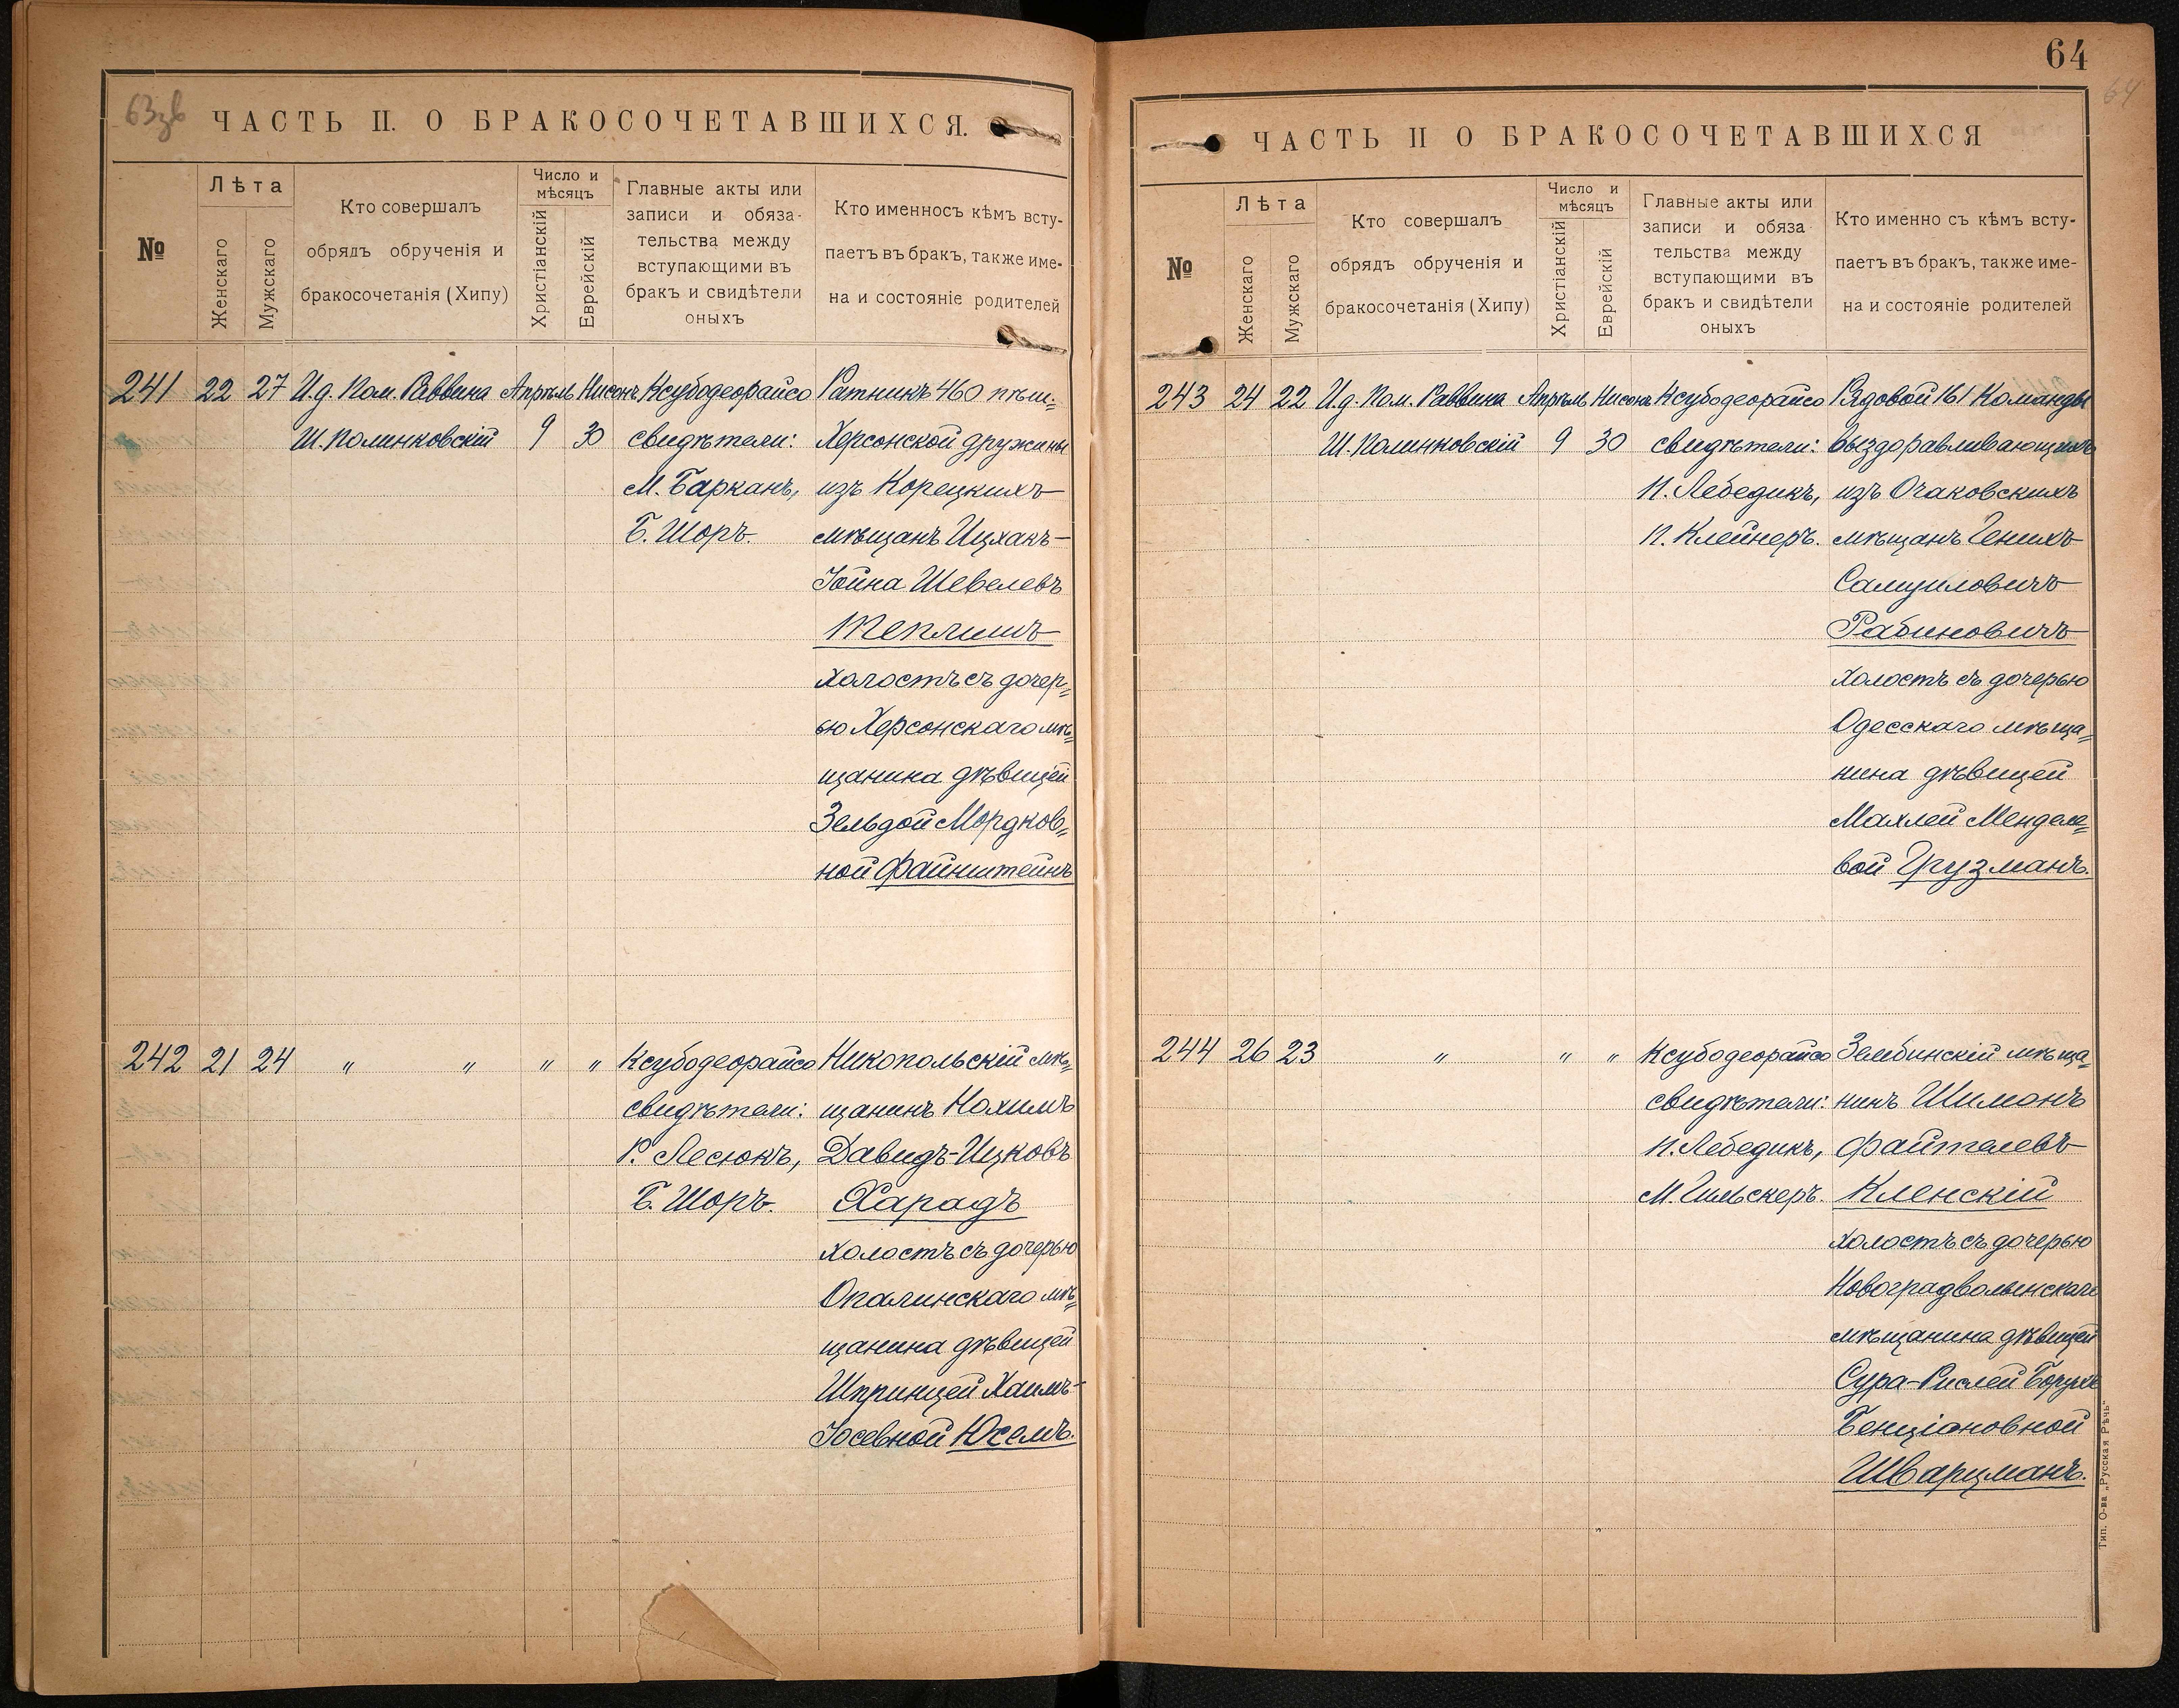 63зв
ЧАСТЬ II. О БРАКОСОЧЕТАВШИХСЯ.
№
Лѣта
Женскаго
Мужскаго
Кто совершалъ
обрядъ обрученія и
бракосочетанія (Хипу)
Число и
мѣсяцъ
Христіанскій
Еврейскій
Главные акты или
записи и обяза-
тельства между
вступающими въ
бракъ и свидѣтели
оныхъ
Кто именносъ кѣмъ всту-
паетъ въ бракъ, также име-
на и состояніе родителей
241 22 27 И.д. Пом. Раввина Апрѣль Нисонъ Ксубодеорайсо Ратникъ 460 пѣш.=
Ш. Полинковскій 9 30 свидѣтели: Херсонской дружины
М. Барканъ, изъ Корецкихъ
Б. Шоръ. мѣщанъ Ицхакъ-
Іойна Шевелевъ
Теплишъ
холостъ съ дочер=
ью Херсонскаго мѣ=
щанина дѣвицей
Зельдой Мордков=
ной Файнштейнъ
242 21 24 " " " " Ксубодеорайсо Никопольскій мѣ=
свидѣтели: щанинъ Нохимъ
Р. Лесюкъ, Давидъ-Ицковъ
Б. Шоръ. Харадъ
холостъ съ дочерью
Опалинскаго мѣ=
щанина дѣвицей
Шпринцей Хаимъ-
Іосевной Юсемъ.
64
64
ЧАСТЬ II О БРАКОСОЧЕТАВШИХСЯ
№
Лѣта
Женскаго
Мужскаго
Кто совершалъ
обрядъ обрученія и
бракосочетанія (Хипу)
Число и
мѣсяцъ
Христіанскій
Еврейскій
Главные акты или
записи и обяза
тельства между
вступающими въ
бракъ и свидѣтели
оныхъ
Кто именно съ кѣмъ всту-
паетъ въ бракъ, также име-
на и состояніе родителей
243 24 22 И.д. Пом. Раввина Апрѣль Нисонъ Ксубодеорайсо Рядовой 161 Команды
Ш. Полинковскій 9 30 свидѣтели: выздоравливающихъ
П. Лебедикъ, изъ Очаковскихъ
П. Клейнеръ. мѣщанъ Генихъ
Самуиловичъ
Рабиновичъ
холостъ съ дочерью
Одесскаго мѣща=
нина дѣвицей
Махлей Менделе=
вой Грузманъ.
244 26 23 " " " Ксубодеорайсо Зембинскій мѣща=
свидѣтели: нинъ Шимонъ
П. Лебедикъ, Файтелевъ
М. Гильскеръ. Кленскій
холостъ съ дочерью
Новоградволынскаго
мѣщанина дѣвицей
Сура-Рислей Борухъ
Бенціановной
Шварцманъ.
Тип. О-ва „Русская Рѣчь"